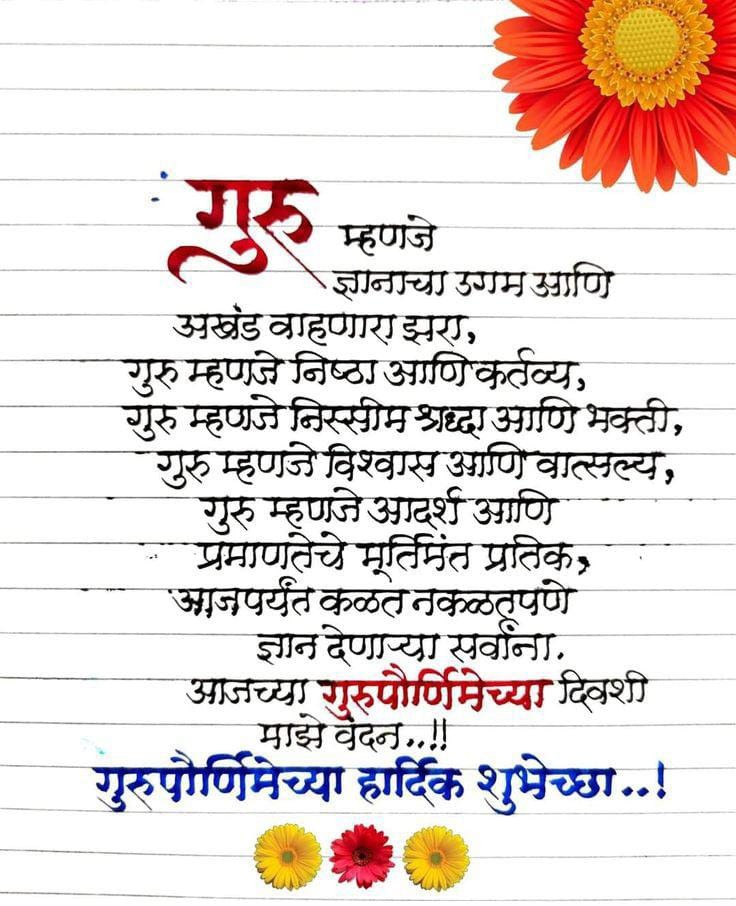 गुरु म्हणजे
ज्ञानाचा उगम आणि
अखंड वाहणारा झरा,
गुरु म्हणजे निष्ठा आणि कर्तव्य,
गुरु म्हणजे निस्सीम श्रद्धा आणि भक्ती,
गुरु म्हणजे विश्वास आणि वात्सल्य,
गुरु म्हणजे आदर्श आणि
प्रमाणतेचे मूर्तिमंत प्रतिक,
आजपर्यंत कळत नकळतपणे
ज्ञान देणाऱ्या सर्वांना.
आजच्या गुरुपौर्णिमेच्या दिवशी
माझे वंदन..!!
गुरुपौर्णिमेच्या हार्दिक शुभेच्छा..!